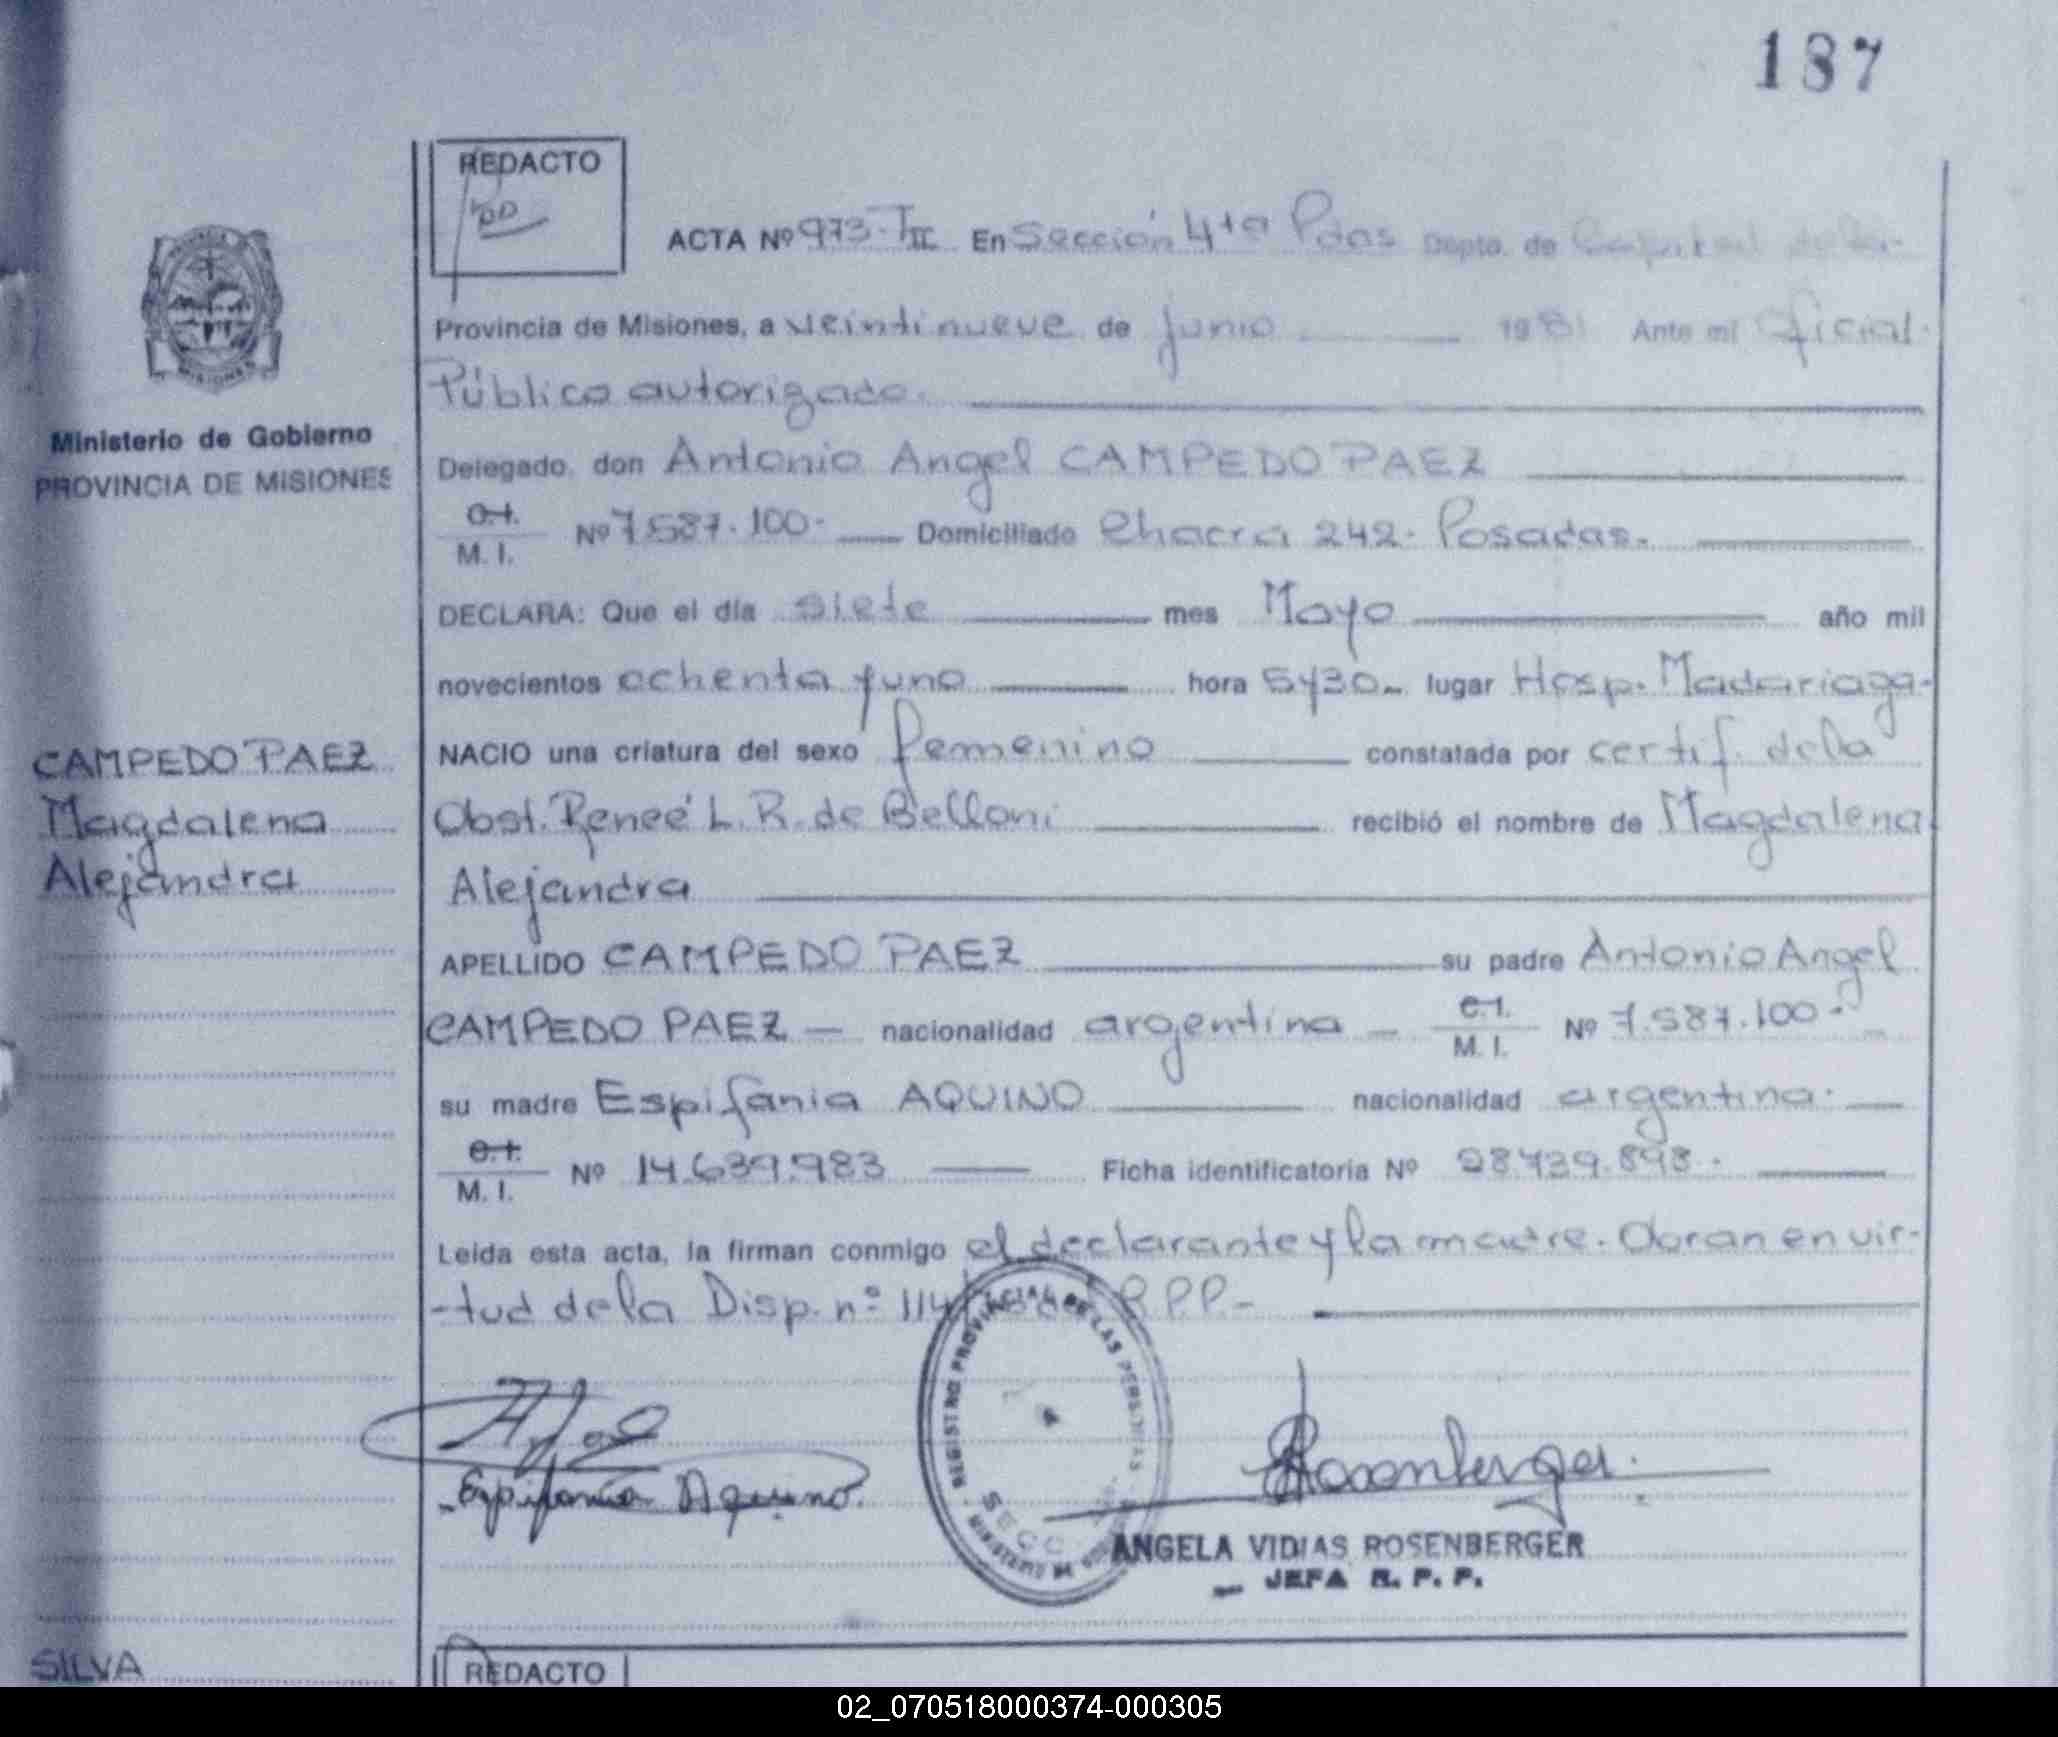 187
REDACTO
ACTA Nº 973-TII En Sección 4ta Pdas Dpto. de Capital de la
Provincia de Misiones, a veintinueve de junio 1981 Ante mi Oficial
Público autorizado.
Delegado, don Antonio Angel CAMPEDO PAEZ
C.I. M. I. Nº 7.587.100- Domiciliado Chacra 242- Posadas.
DECLARA: Que el día siete mes Mayo año mil
novecientos ochenta y uno hora 5y30 lugar Hosp. Madariaga-
NACIO una criatura del sexo femenino constatada por certif. de la
Obst. Reneé L. R. de Belloni recibió el nombre de Magdalena
Alejandra
APELLIDO CAMPEDO PAEZ su padre Antonio Angel
CAMPEDO PAEZ nacionalidad argentina C.I. M. I. Nº 7.587.100-
su madre Espifania AQUINO nacionalidad argentina.
C.I. M. I. Nº 14.639.983 Ficha identificatoria Nº 28.739.898.
Leida esta acta, la firman conmigo el declarante y la madre. Obran en vir-
-tud de la Disp. nº 114 R.P.P.-
Espifania Aquino.
REGISTRO PROVINCIAL DE LAS PERSONAS
Rosenberger
ANGELA VIDIAS ROSENBERGER
JEFA R. P. P.
REDACTO
MISIONES
Ministerio de Gobierno
PROVINCIA DE MISIONES
CAMPEDO PAEZ
Magdalena
Alejandra
SILVA
02_070518000374-000305